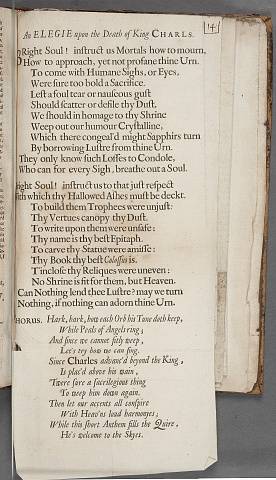 14
An ELEGIE upon the Death of King CHARLS.
Right Soul! instruct us Mortals how to mourn,
How to approach, yet not profane thine Urn.
To come with Humane Sighs, or Eyes,
Were sure too bold a Sacrifice.
Lest a foul tear or nauseous gust
Should scatter or defile thy Dust,
We should in homage to thy Shrine
Weep out our humour Crystalline,
Which there congeal'd might Sapphirs turn
By borrowing Lustre from thine Urn.
They only know such Losses to Condole,
Who can for every Sigh, breathe out a Soul.
ight Soul! instruct us to that just respect
ith which thy Hallowed Ashes must be deckt.
To build them Trophees were unjust:
Thy Vertues canopy thy Dust.
To write upon them were unsafe:
Thy name is thy best Epitaph.
To carve thy Statue were amisse:
Thy Book thy best Colossus is.
T'inclose thy Reliques were uneven:
No Shrine is fit for them, but Heaven.
Can Nothing lend thee Lustre? may we turn
Nothing, if nothing can adorn thine Urn.
HORUS. Hark, hark, how each Orb his Tune doth keep,
While Peals of Angels ring;
And since we cannot fitly weep,
Let's try how we can sing.
Since Charles advanc'd beyond the King,
Is plac'd above his wain,
'Twere sure a sacrilegious thing
To weep him down again.
Then let our accents all conspire
With Heav'ns loud harmonyes;
While this short Anthem fills the Quire,
He's welcome to the Skyes.